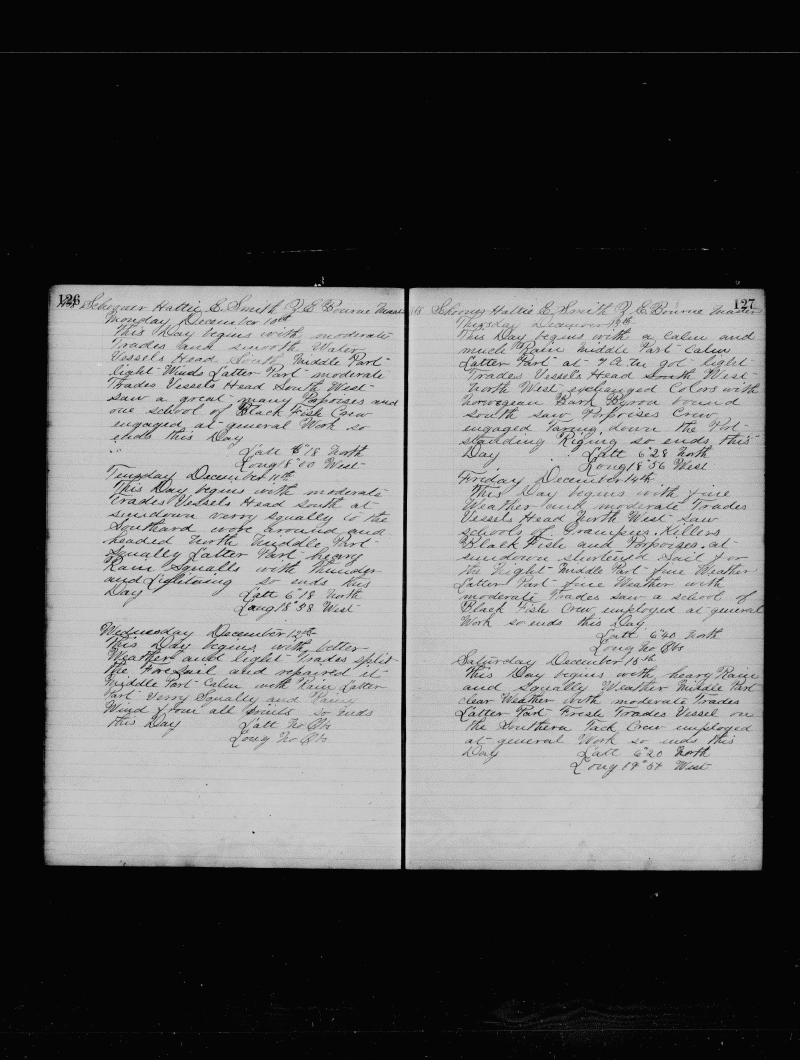 126
Schooner Hattie E. Smith Z. E. Bourne Master
Monday December 10th
This Day begins with moderate
Trades and smooth Water
Vessels Head South Middle Part
light Winds Latter Part moderate
Trades Vessels Head South West
saw a great many Porpoises and
one school of Black Fish Crew
engaged at general Work so
ends this Day
" Latt 6°18 North
Long 18°00 West
Tuesday December 11th
This Day begins with moderate
Trades Vessels Head South at
sundown verry squally to the
Southard wore around and
headed North Middle Part
Squally Latter Part heavy
Rain Squalls with Thunder
and Lightning so ends this
Day Latt 6°18 North
Long 18°38 West
Wednesday December 12th
This Day begins with better
Weather and light Trades split
the ForeSail and repaired it
Middle Part Calm with Rain Latter
Part Verry Squally and Rainy
Wind from all points so ends
this Day Latt No Obs
Long No Obs
127
Schoner Hattie E. Smith Z. E. Bourne Master
Thursday December 13th
This Day begins with a Calm and
much Rain Middle Part Calm
Latter Part at 4 A.M got light
Trades Vessels Head South West
North West exchanged Colors with
Norwegian Bark Byron bound
South saw Porpoises Crew
engaged Taring down the Port
standing Riging so ends this
Day Latt 6°28 North
Long 18°56 West
Friday December 14th
This Day begins with fine
Weather and moderate Trades
Vessels Head North West saw
schools of Grampus, Killers
Black Fish and Porpoises, at
sundown shortened Sail for
the Night Middle Part fine Weather
Latter Part fine Weather with
moderate Trades saw a school of
Black Fish Crew employed at general
Work so ends this Day
Latt 6°40 North
Long No Obs
Saturday December 15th
This Day begins with heavy Rain
and squally Weather Middle Part
clear Weather with moderate Trades
Latter Part Fresh Trades Vessel on
the Southern Tack Crew employed
at general Work so ends this
Day Latt 6°20 North
Long 19°54 West